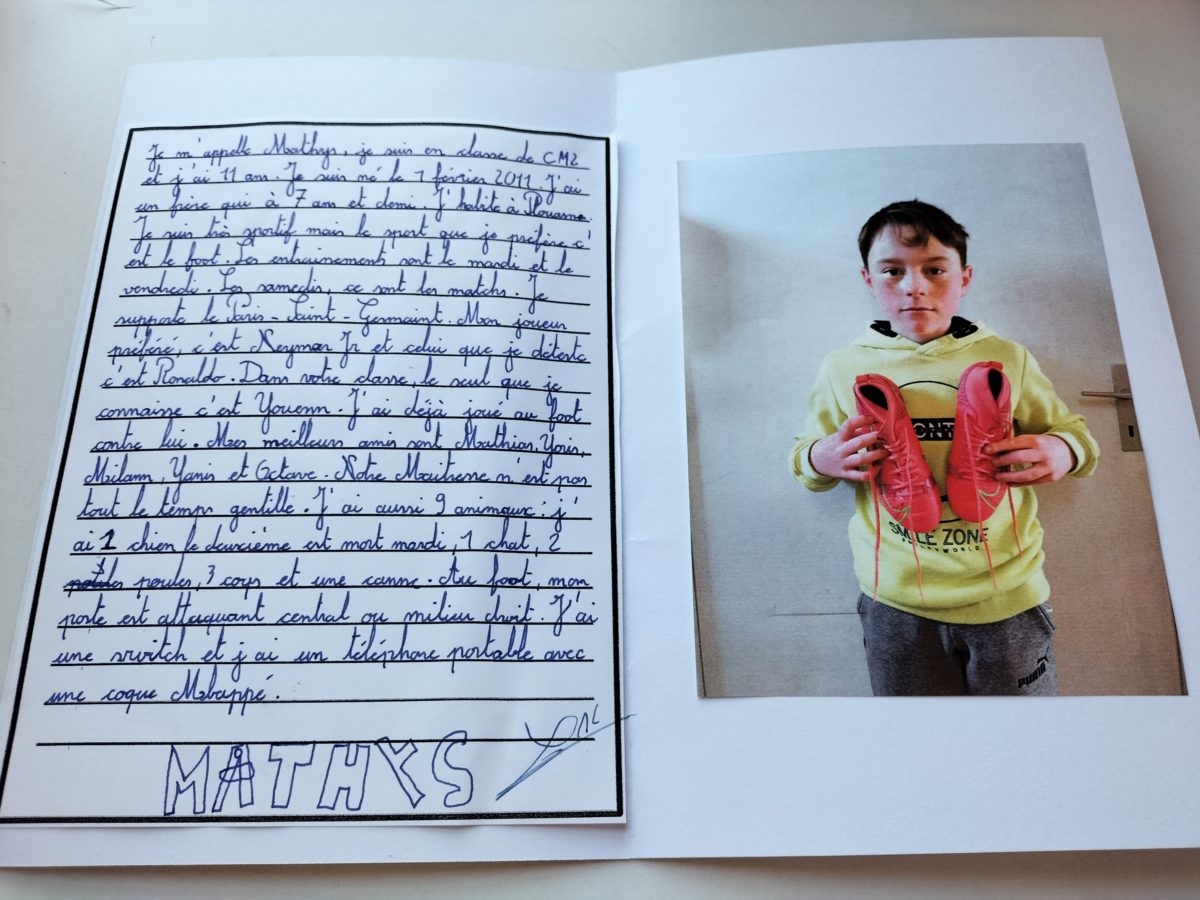 Je m'appelle Mathys, je suis en classe de CM2
et j'ai 11 ans. Je suis né le 1 février 2011. J'ai
un frère qui à 7 ans et demi. J'habite à Plouasne.
Je suis très sportif mais le sport que je préfère c'
est le foot. Les entrainements sont le mardi et le
vendredi. Les samedis, ce sont les matchs. Je
supporte le Paris-Saint-Germaint. Mon joueur
préféré, c'est Neymar Jr et celui que je déteste
c'est Ronaldo. Dans votre classe, le seul que je
connaisse c'est Youenn. J'ai déjà joué au foot
contre lui. Mes meilleurs amis sont Mathias, Yoris,
Milann, Yanis et Octave. Notre Maitresse n'est pas
tout le temps gentille. J'ai aussi 9 animaux : j'
ai 1 chien le deuxième est mort mardi, 1 chat, 2
poules, 3 coqs et une canne. Au foot, mon
poste est attaquant central ou milieu droit. J'ai
une switch et j'ai un téléphone portable avec
une coque Mbappé.
MATHYS
SMILE ZONE
WORLD
PUMA